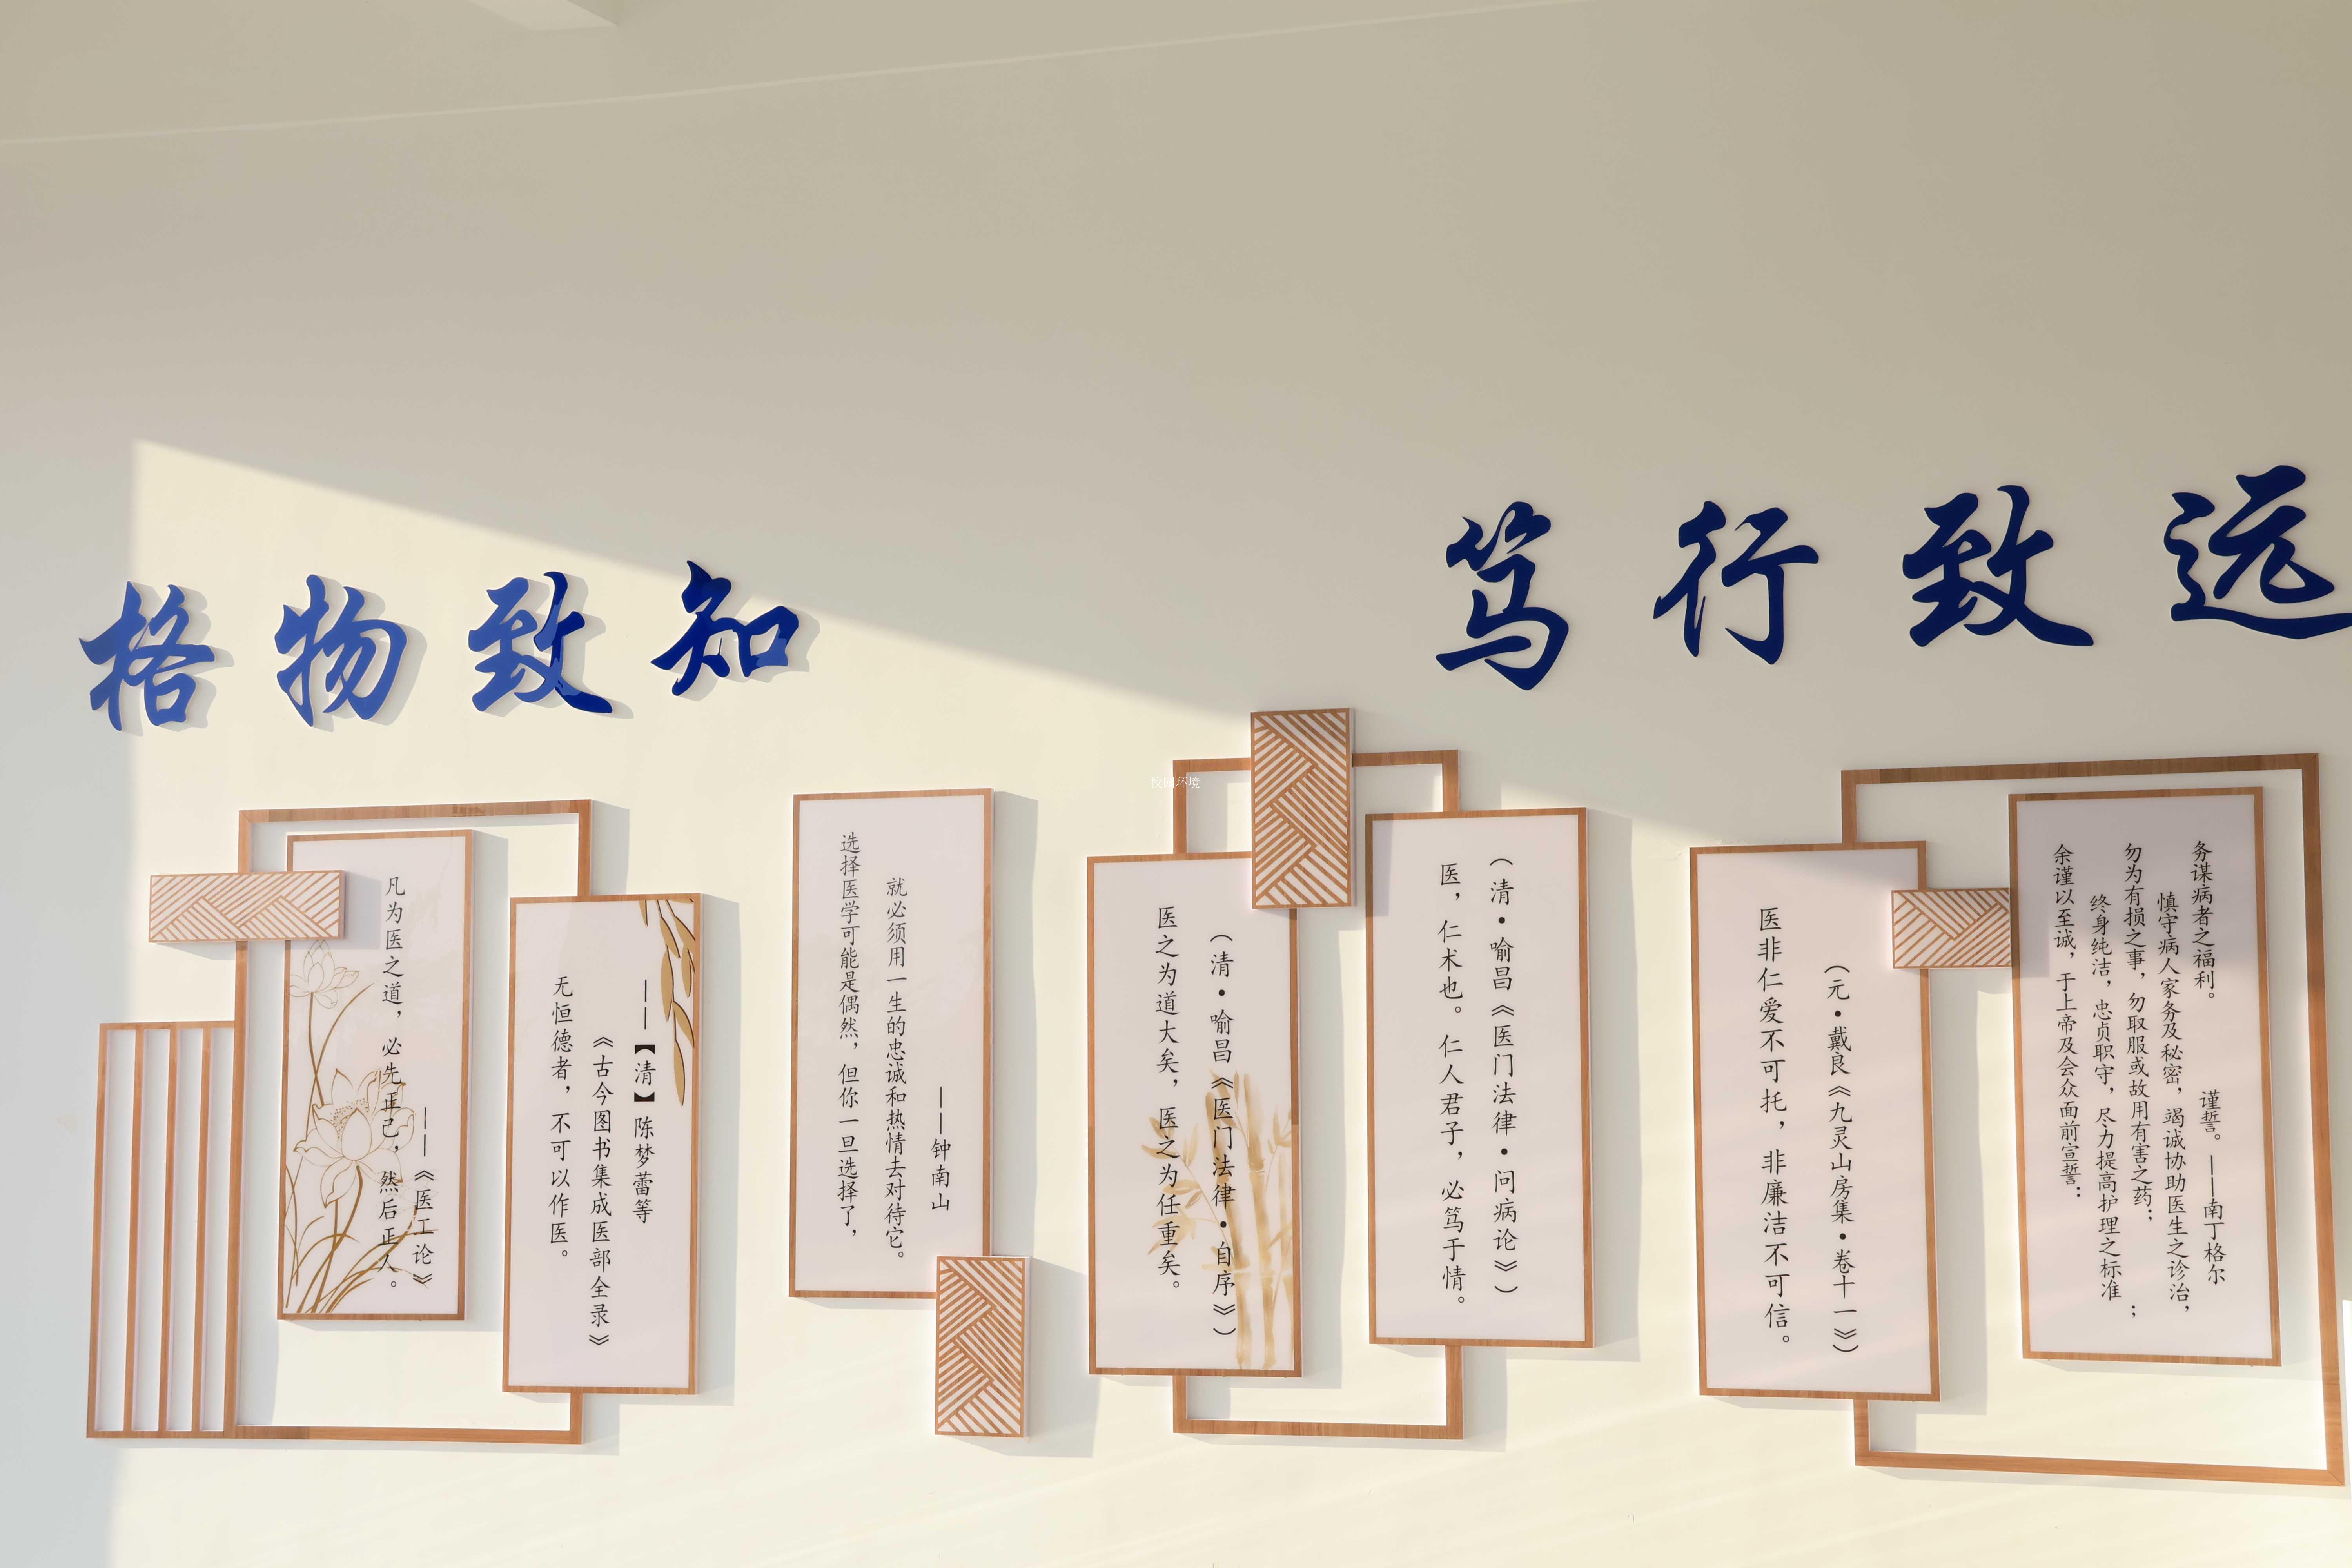 格物致知
笃行致远
校园环境
凡为医之道，必先正己，然后正人。
——《医工论》
无恒德者，不可以作医。
《古今图书集成医部全录》
——【清】陈梦蕾等
选择医学可能是偶然，但你一旦选择了，
就必须用一生的忠诚和热情去对待它。
——钟南山
医之为道大矣，医之为任重矣。
（清·喻昌《医门法律·自序》）
医，仁术也。仁人君子，必笃于情。
（清·喻昌《医门法律·问病论》）
医非仁爱不可托，非廉洁不可信。
（元·戴良《九灵山房集·卷十一》）
余谨以至诚，于上帝及会众面前宣誓：
终身纯洁，忠贞职守，尽力提高护理之标准；
勿为有损之事，勿取服或故用有害之药；
慎守病人家务及秘密，竭诚协助医生之诊治，
务谋病者之福利。
谨誓。——南丁格尔